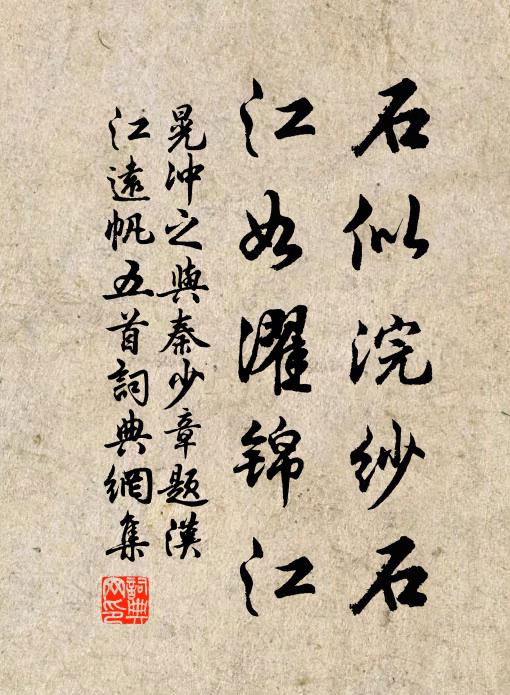 石似浣紗石
江如濯錦江
晁沖之與秦少章題漢
江遠帆五首詞典網集
詞典網印